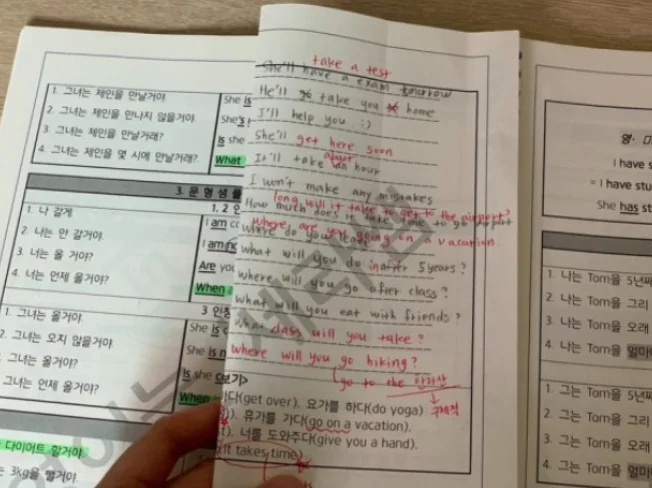 1. 그녀는 제인을 만날거야.
2. 그녀는 제인을 만나지 않을거야.
3. 그녀는 제인을 만날거래?
4. 그녀는 제인을 몇 시에 만날거래?
She is
She's
Is she
What
3. 문 형 샘 플
1. 2 인
1. 나 갈게
2. 나는 안 갈거야.
3. 너는 올 거야?
4. 너는 언제 올거야?
I am
I am
Are you
When
3 인칭
그녀는 올거야
2. 그녀는 오지 않을거야
그녀는 올거야?
그녀는 언제 올거야?
She is
She is n
Is she
When
다이어트 할거야.
는 3kg을 뺄거야
take a test
She'll have a exam tomorrow
He'll take you home
I'll help you :)
She'll get here soon
It'll take about an hour
I won't make any mistakes
long will it take to get to the airport?
How much does it take time to go
Where are you going on a vacation.
Where do you
What will you do in after 5 years?
Where will you go after class?
What will you eat with friends?
What class will you take?
Where will you go hiking?
go to the
구체적
<보기>
(get over). 요가를 하다(do yoga)
휴가를 가다(go on a vacation).
너를 도와주다(give you a hand).
(It takes time)
영·
I have s
= I have stu
She has st
1. 나는 Tom을 5년째
2. 나는 Tom을 그리
3. 나는 Tom을 오래
4. 나는 Tom을 얼마
1. 그는 Tom을 5년
2. 그는 Tom을 그리
3. 그는 Tom을 오래
4. 그는 Tom을 얼마